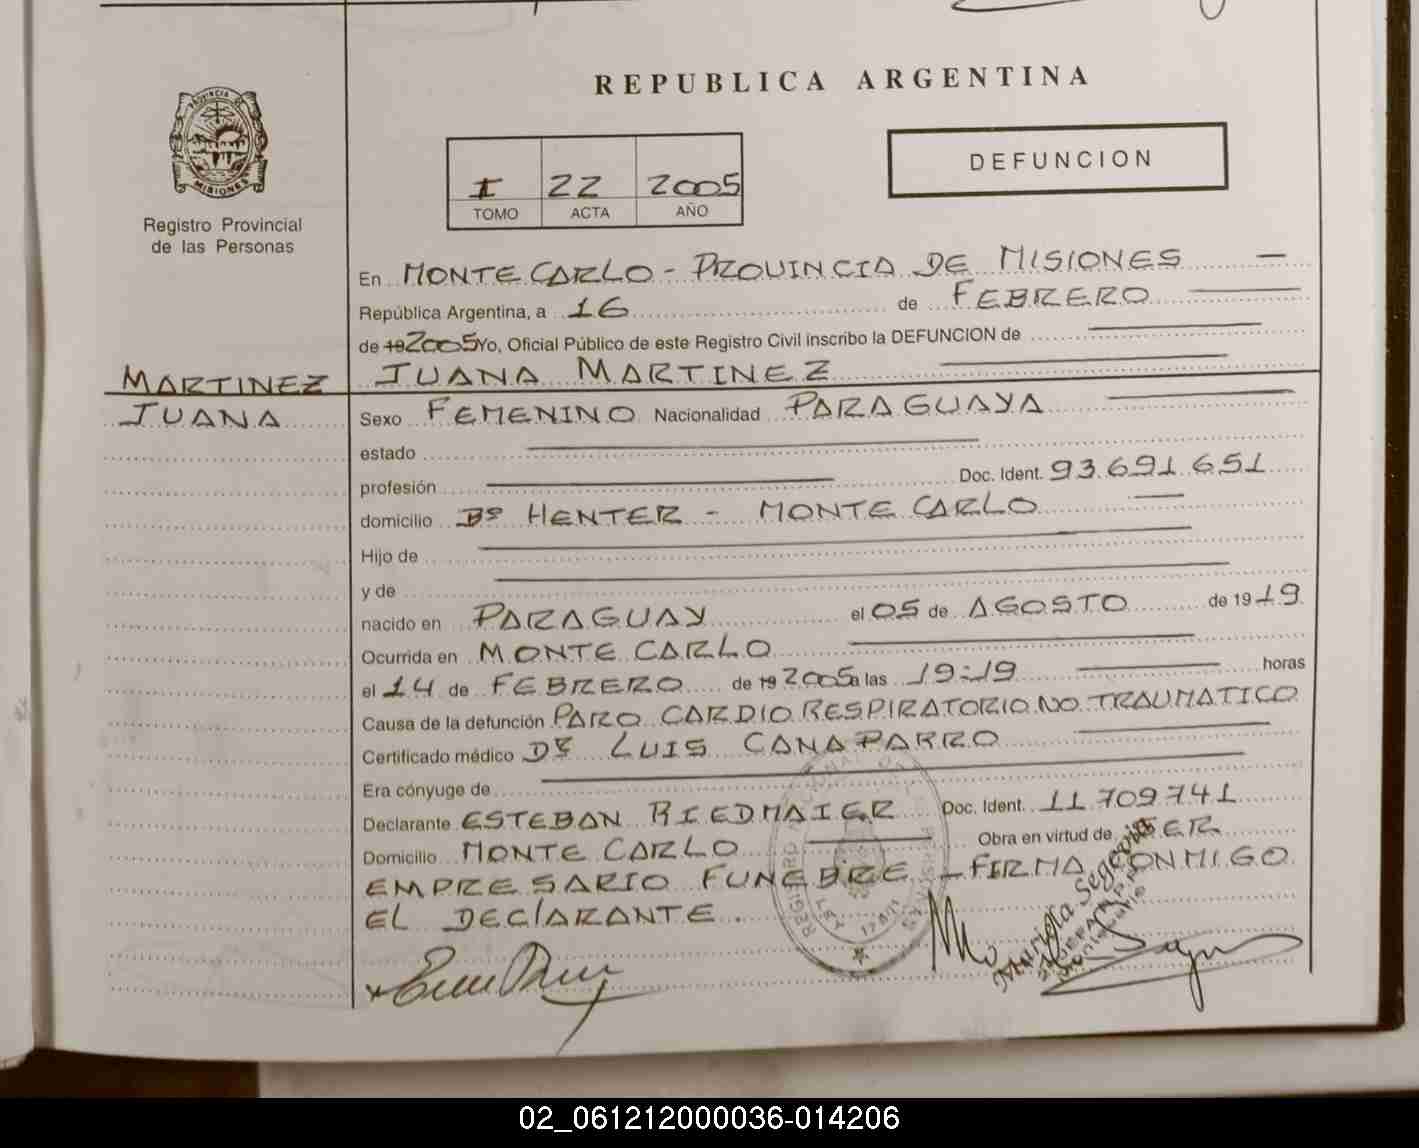 REPUBLICA ARGENTINA
PROVINCIA DE
MISIONES
Registro Provincial
de las Personas
I 22 2005
TOMO ACTA AÑO
DEFUNCION
En MONTE CARLO - PROVINCIA DE MISIONES —
República Argentina, a 16 de FEBRERO
de 19 2005 Yo, Oficial Público de este Registro Civil inscribo la DEFUNCION de
MARTINEZ
JUANA
JUANA MARTINEZ
Sexo FEMENINO Nacionalidad PARAGUAYA
estado
profesión Doc. Ident. 93.691.651
domicilio Bº HENTER - MONTE CARLO
Hijo de
y de
nacido en PARAGUAY el 05 de AGOSTO de 1919
Ocurrida en MONTE CARLO
el 14 de FEBRERO de 19 2005 a las 19:19 horas
Causa de la defunción PARO CARDIO RESPIRATORIO NO TRAUMATICO
Certificado médico Dr LUIS CANAPARRO
Era cónyuge de
Declarante ESTEBAN RIEDMAIER Doc. Ident. 11.709.741
Domicilio MONTE CARLO Obra en virtud de SER
EMPRESARIO FUNEBRE - FIRMA CONMIGO
EL DECLARANTE.
02_061212000036-014206